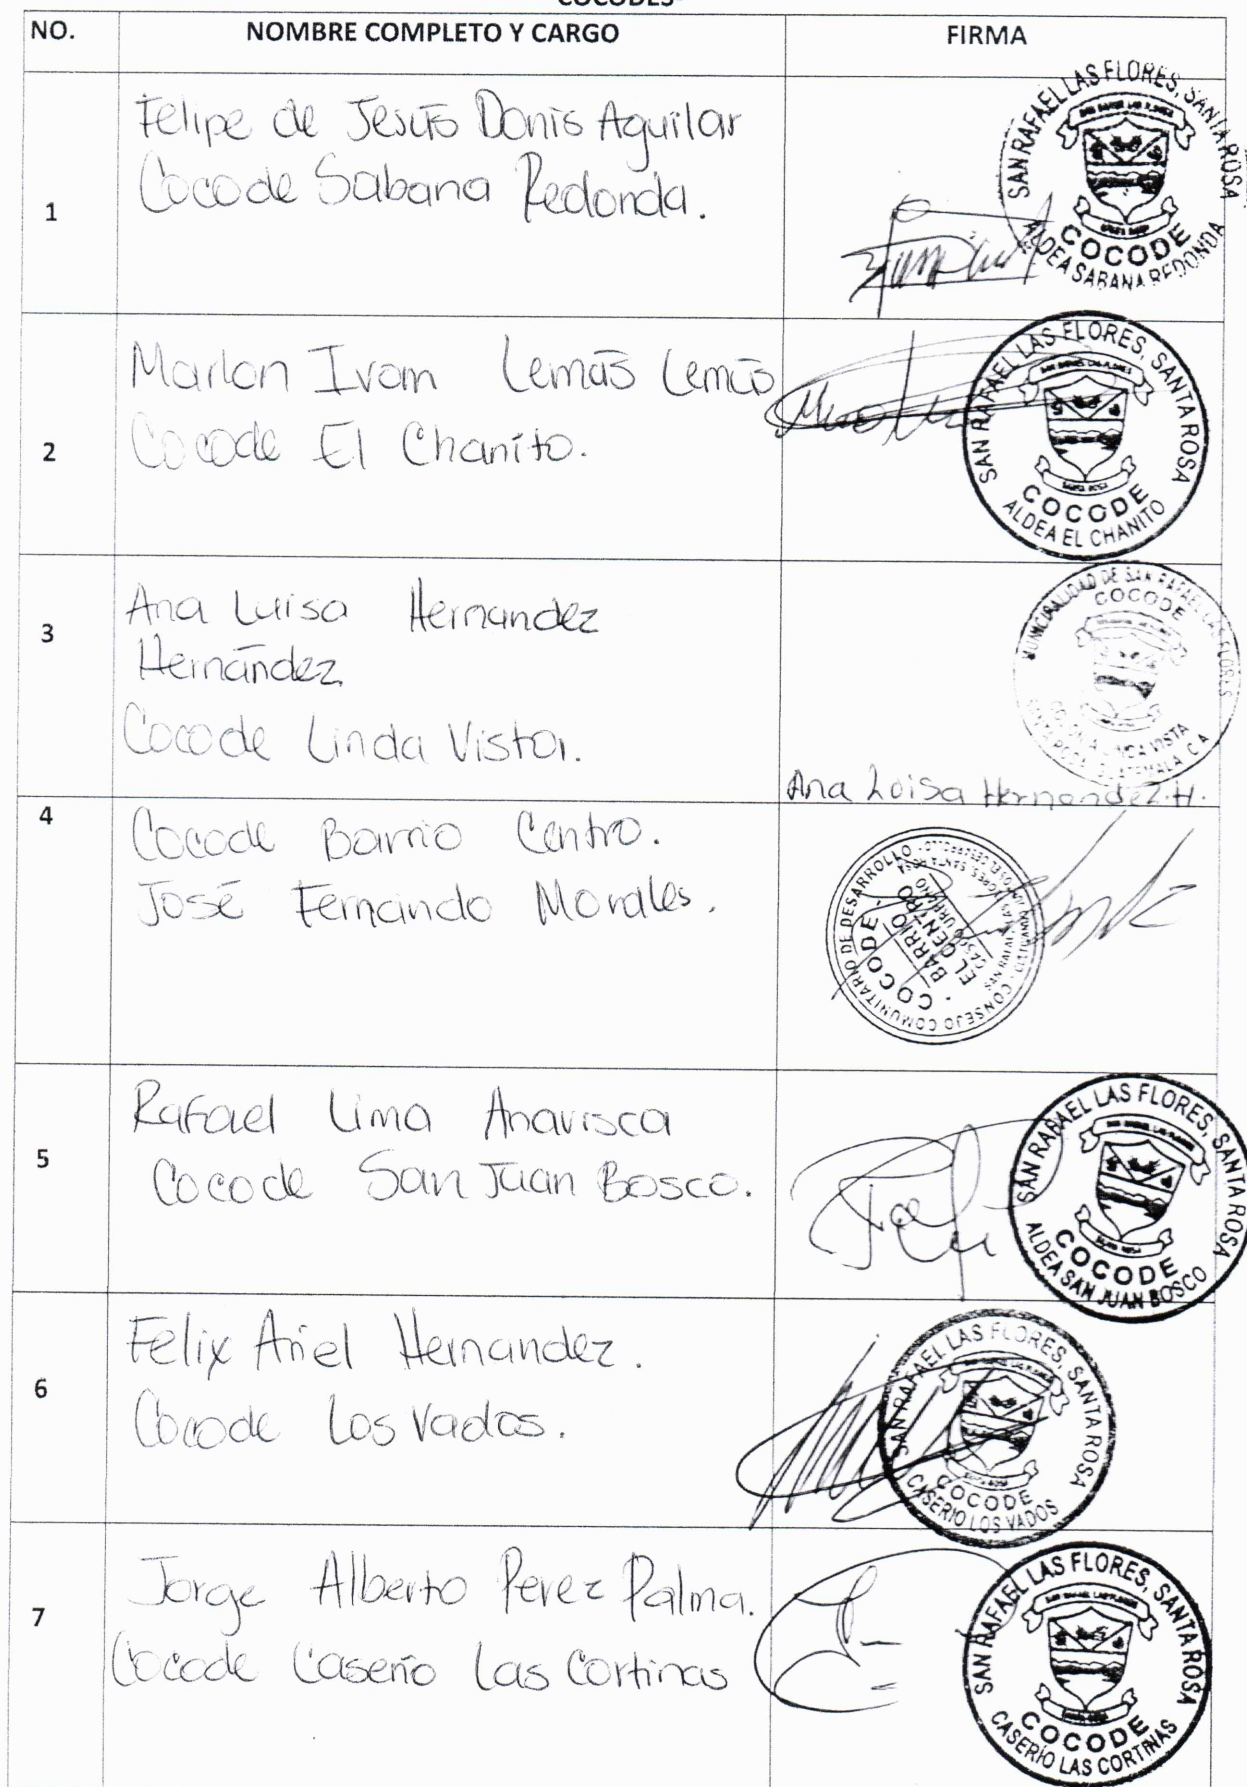 COCODES-
NO. NOMBRE COMPLETO Y CARGO FIRMA
1
Felipe de Jesús Donis Aguilar
Cocode Sabana Redonda.
SAN RAFAEL LAS FLORES, SANTA ROSA
COCODE
ALDEA SABANA REDONDA
2
Marlon Ivam Lemús Lemús
Cocode El Chanito.
SAN RAFAEL LAS FLORES, SANTA ROSA
COCODE
ALDEA EL CHANITO
3
Ana Luisa Hernandez
Hernández
Cocode Linda Vista.
MUNICIPALIDAD DE SAN RAFAEL LAS FLORES
COCODE
COLONIA LINDA VISTA
SANTA ROSA, GUATEMALA, C.A.
Ana Loisa Hernandez.H.
4
Cocode Barrio Centro.
José Fernando Morales.
CONSEJO COMUNITARIO DE DESARROLLO
- COCODE -
BARRIO
EL CENTRO
CASCO URBANO
5
Rafael Lima Anavisca
Cocode San Juan Bosco.
SAN RAFAEL LAS FLORES, SANTA ROSA
COCODE
ALDEA SAN JUAN BOSCO
6
Felix Ariel Hernandez.
Cocode Los Vados.
SAN RAFAEL LAS FLORES, SANTA ROSA
COCODE
CASERIO LOS VADOS
7
Jorge Alberto Perez Palma.
Cocode Caserío Las Cortinas
SAN RAFAEL LAS FLORES, SANTA ROSA
COCODE
CASERÍO LAS CORTINAS